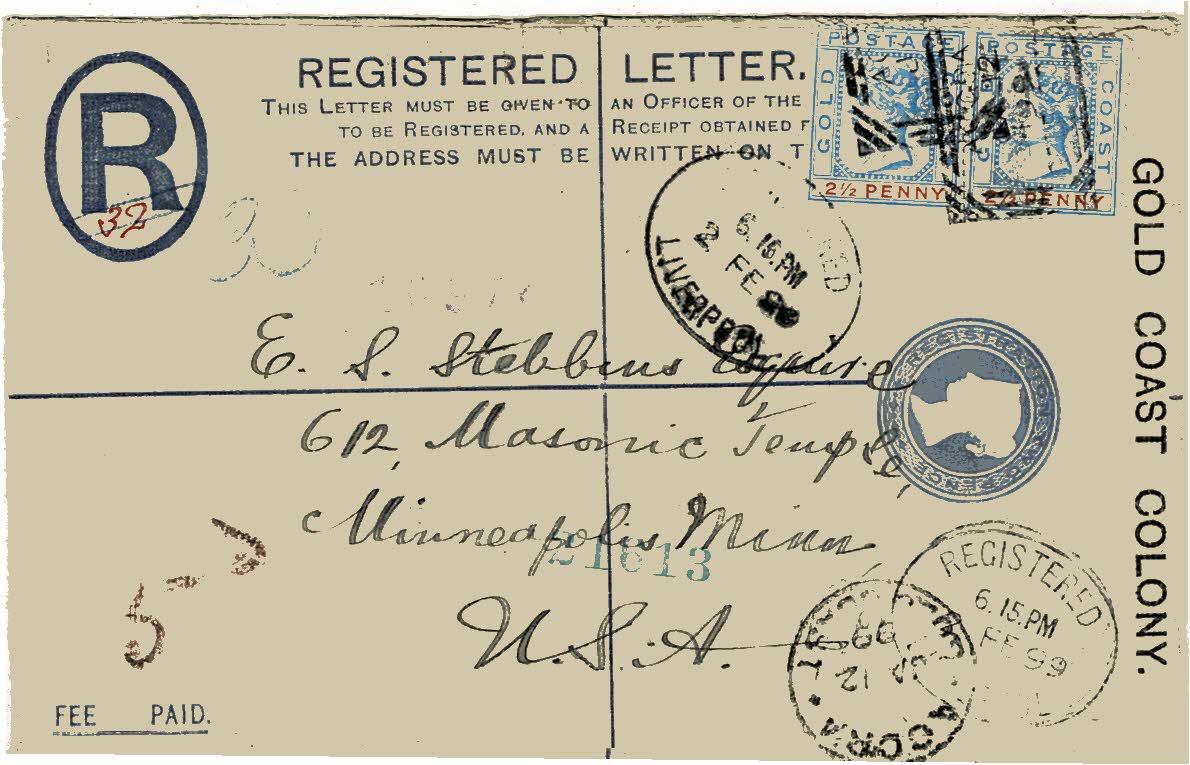 R
32
REGISTERED LETTER.
THIS LETTER MUST BE GIVEN TO AN OFFICER OF THE
TO BE REGISTERED, AND A RECEIPT OBTAINED F
THE ADDRESS MUST BE WRITTEN ON T
POSTAGE
GOLD
2½ PENNY
POSTAGE
COAST
2½ PENNY
GOLD COAST COLONY.
6.15.PM
2 FE 99
LIVERPOOL
E. S. Stebbins Esquire
612, Masonic Temple,
Minneapolis, Minn
U.S.A.
REGISTRATION TWO PENCE
21613
5
REGISTERED
6.15.PM
FE 99
ACCRA
12
99
FEE PAID.